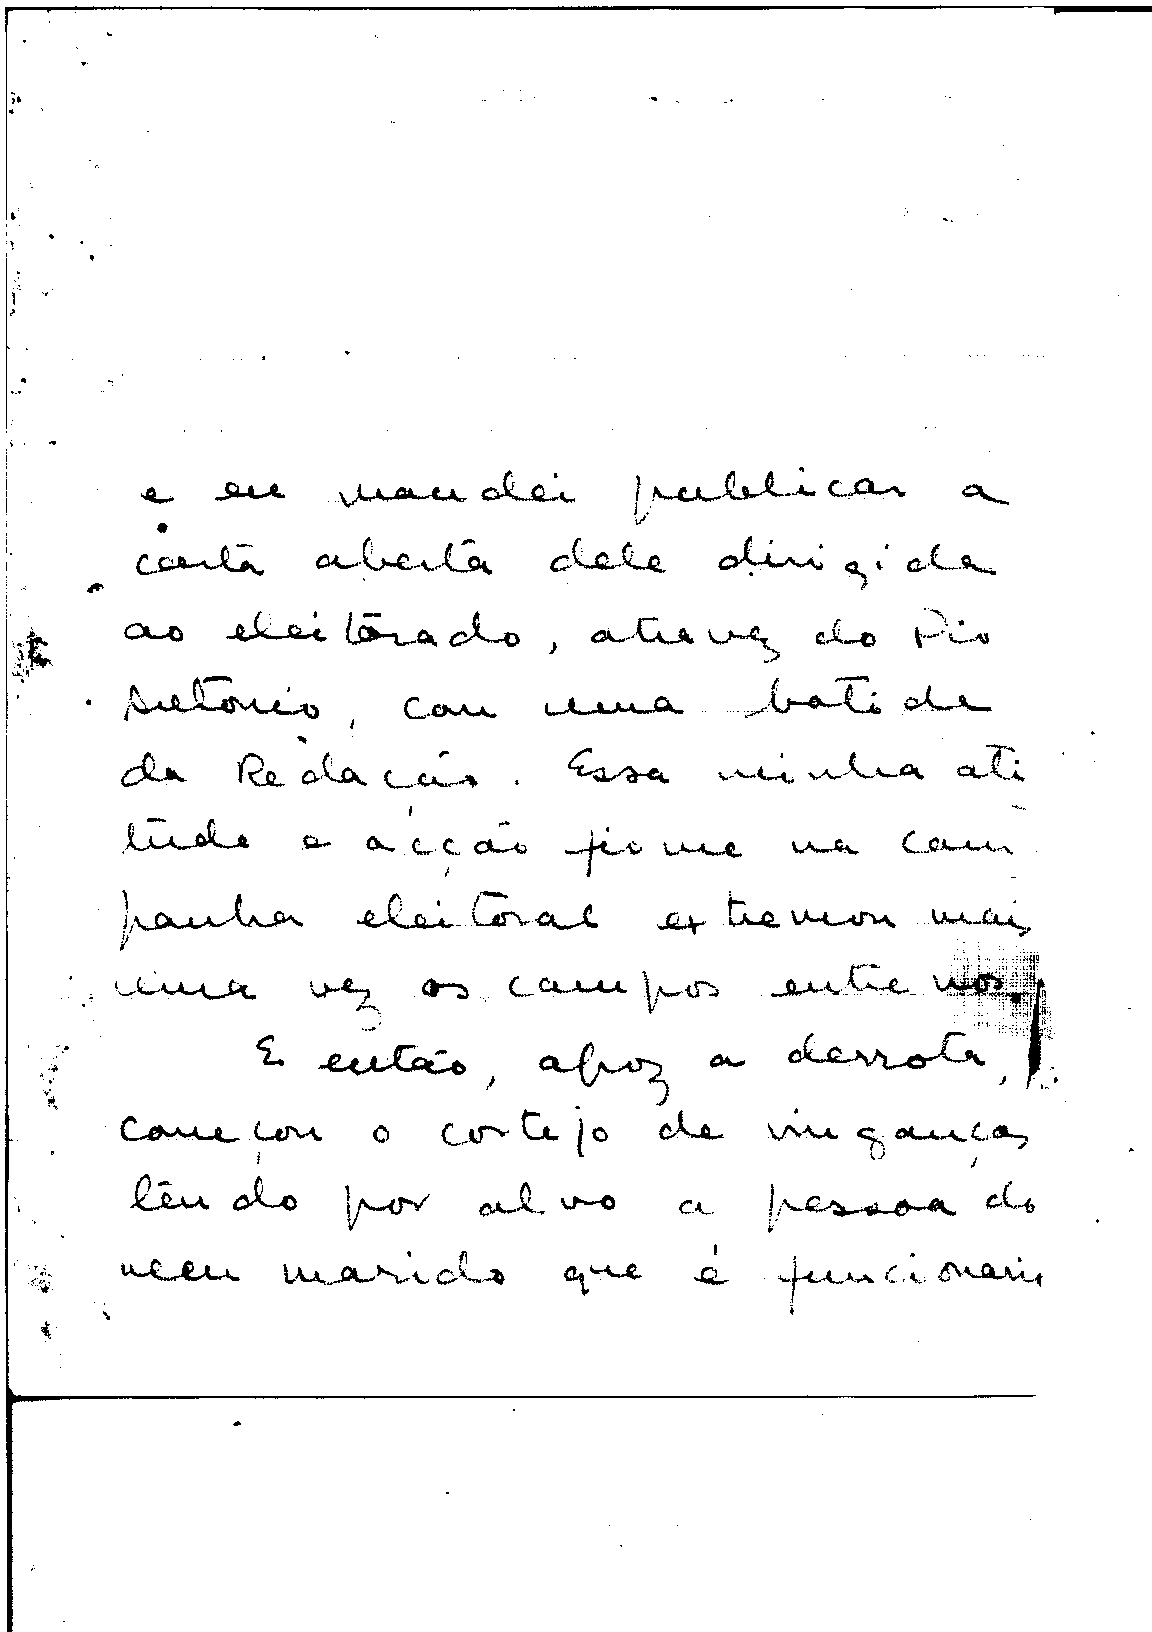 e eu mandei publicar a
carta aberta dele dirigida
ao eleitorado, atravez do Pio
Antonio, com uma batida
da Redacção. Essa minha ati
tude e acção firme na cam
panha eleitoral extremou mais
uma vez os campos entre nós.
E então, apoz a derrota,
começou o cortejo de vinganças
tendo por alvo a pessoa do
meu marido que é funcionario